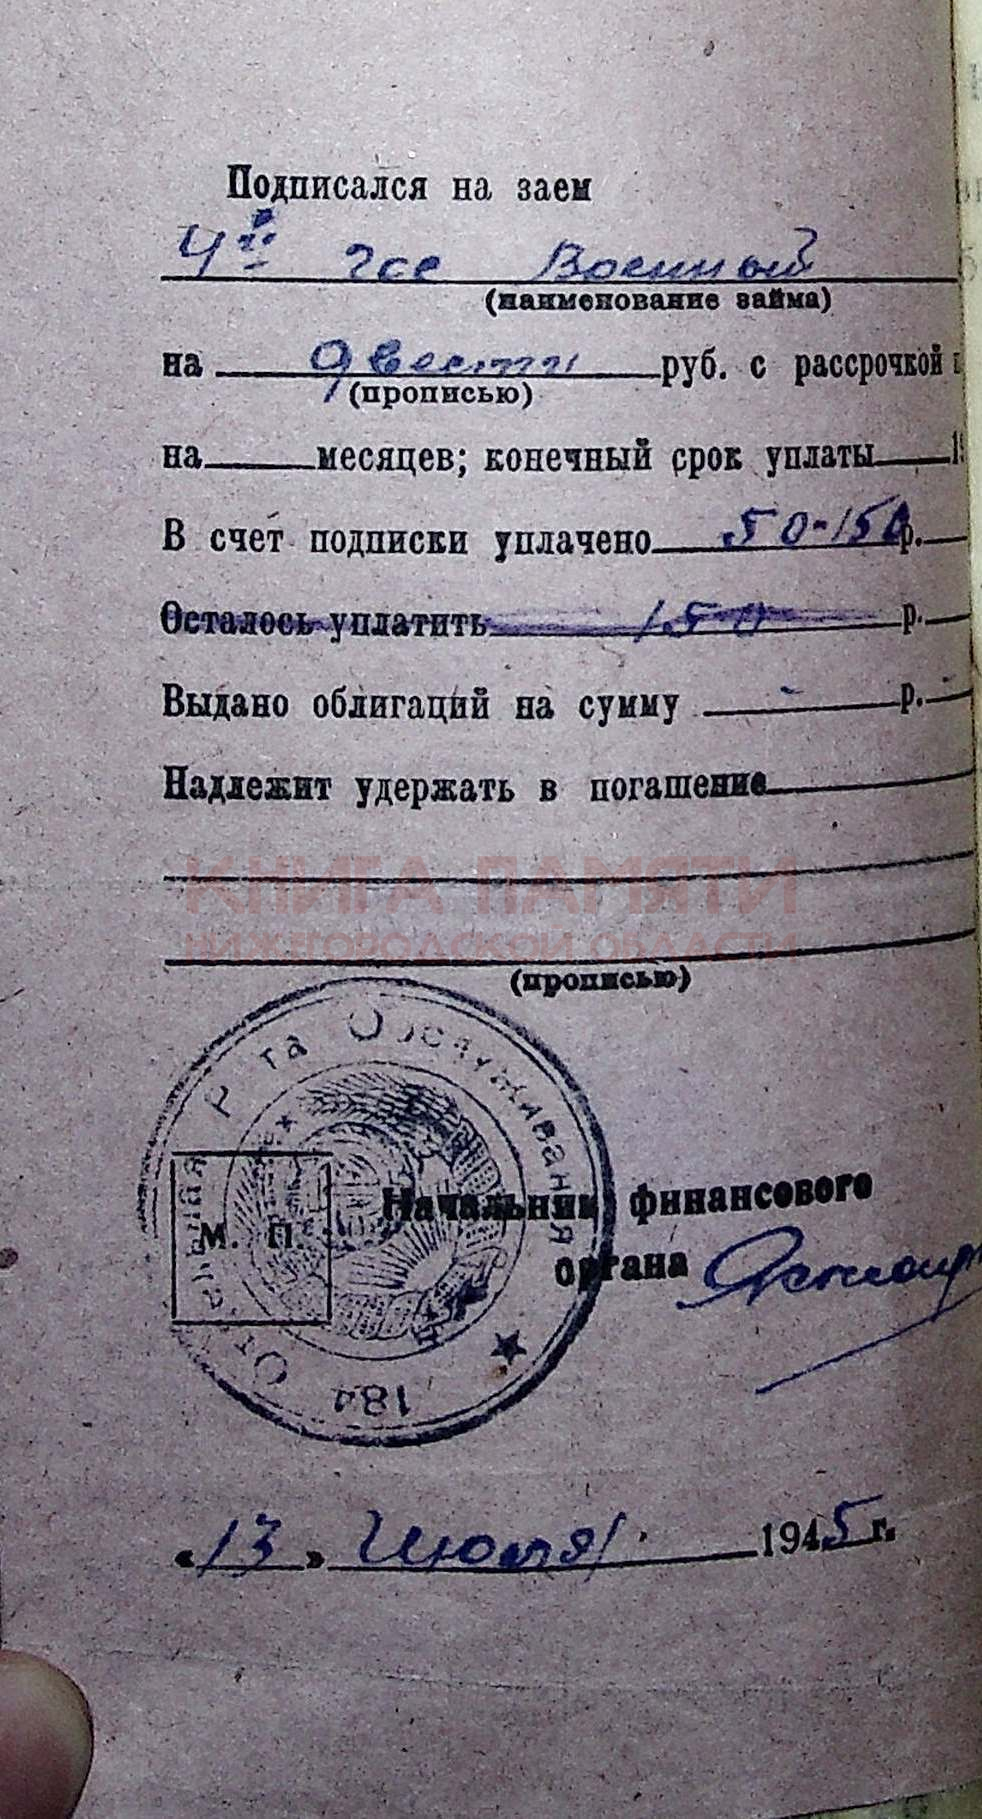 Подписался на заем
4й гос Военный
(наименование займа)
на двести руб. с рассрочкой
(прописью)
на месяцев; конечный срок уплаты 19
В счет подписки уплачено 50-150 р.
Осталось уплатить 150 р.
Выдано облигаций на сумму - р.
Надлежит удержать в погашение
КНИГА ПАМЯТИ
НИЖЕГОРОДСКОЙ ОБЛАСТИ
(прописью)
Рота Обслуживания
184
М. П.
Начальник финансового
органа
«13» Июля 1945 г.